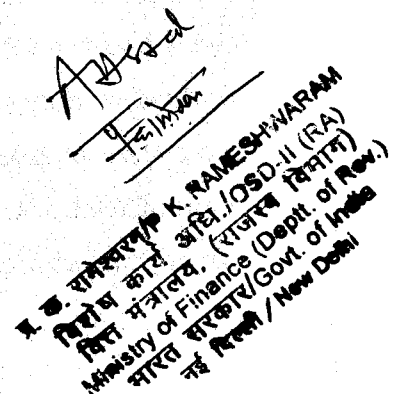 प्र. क. रामेश्वरम्/P K. RAMESHWARAM
विशेष कार्य अधि./OSD-II (RA)
वित्त मंत्रालय, (राजस्व विभाग)
Ministry of Finance (Deptt. of Rev.)
भारत सरकार/Govt. of India
नई दिल्ली / New Delhi